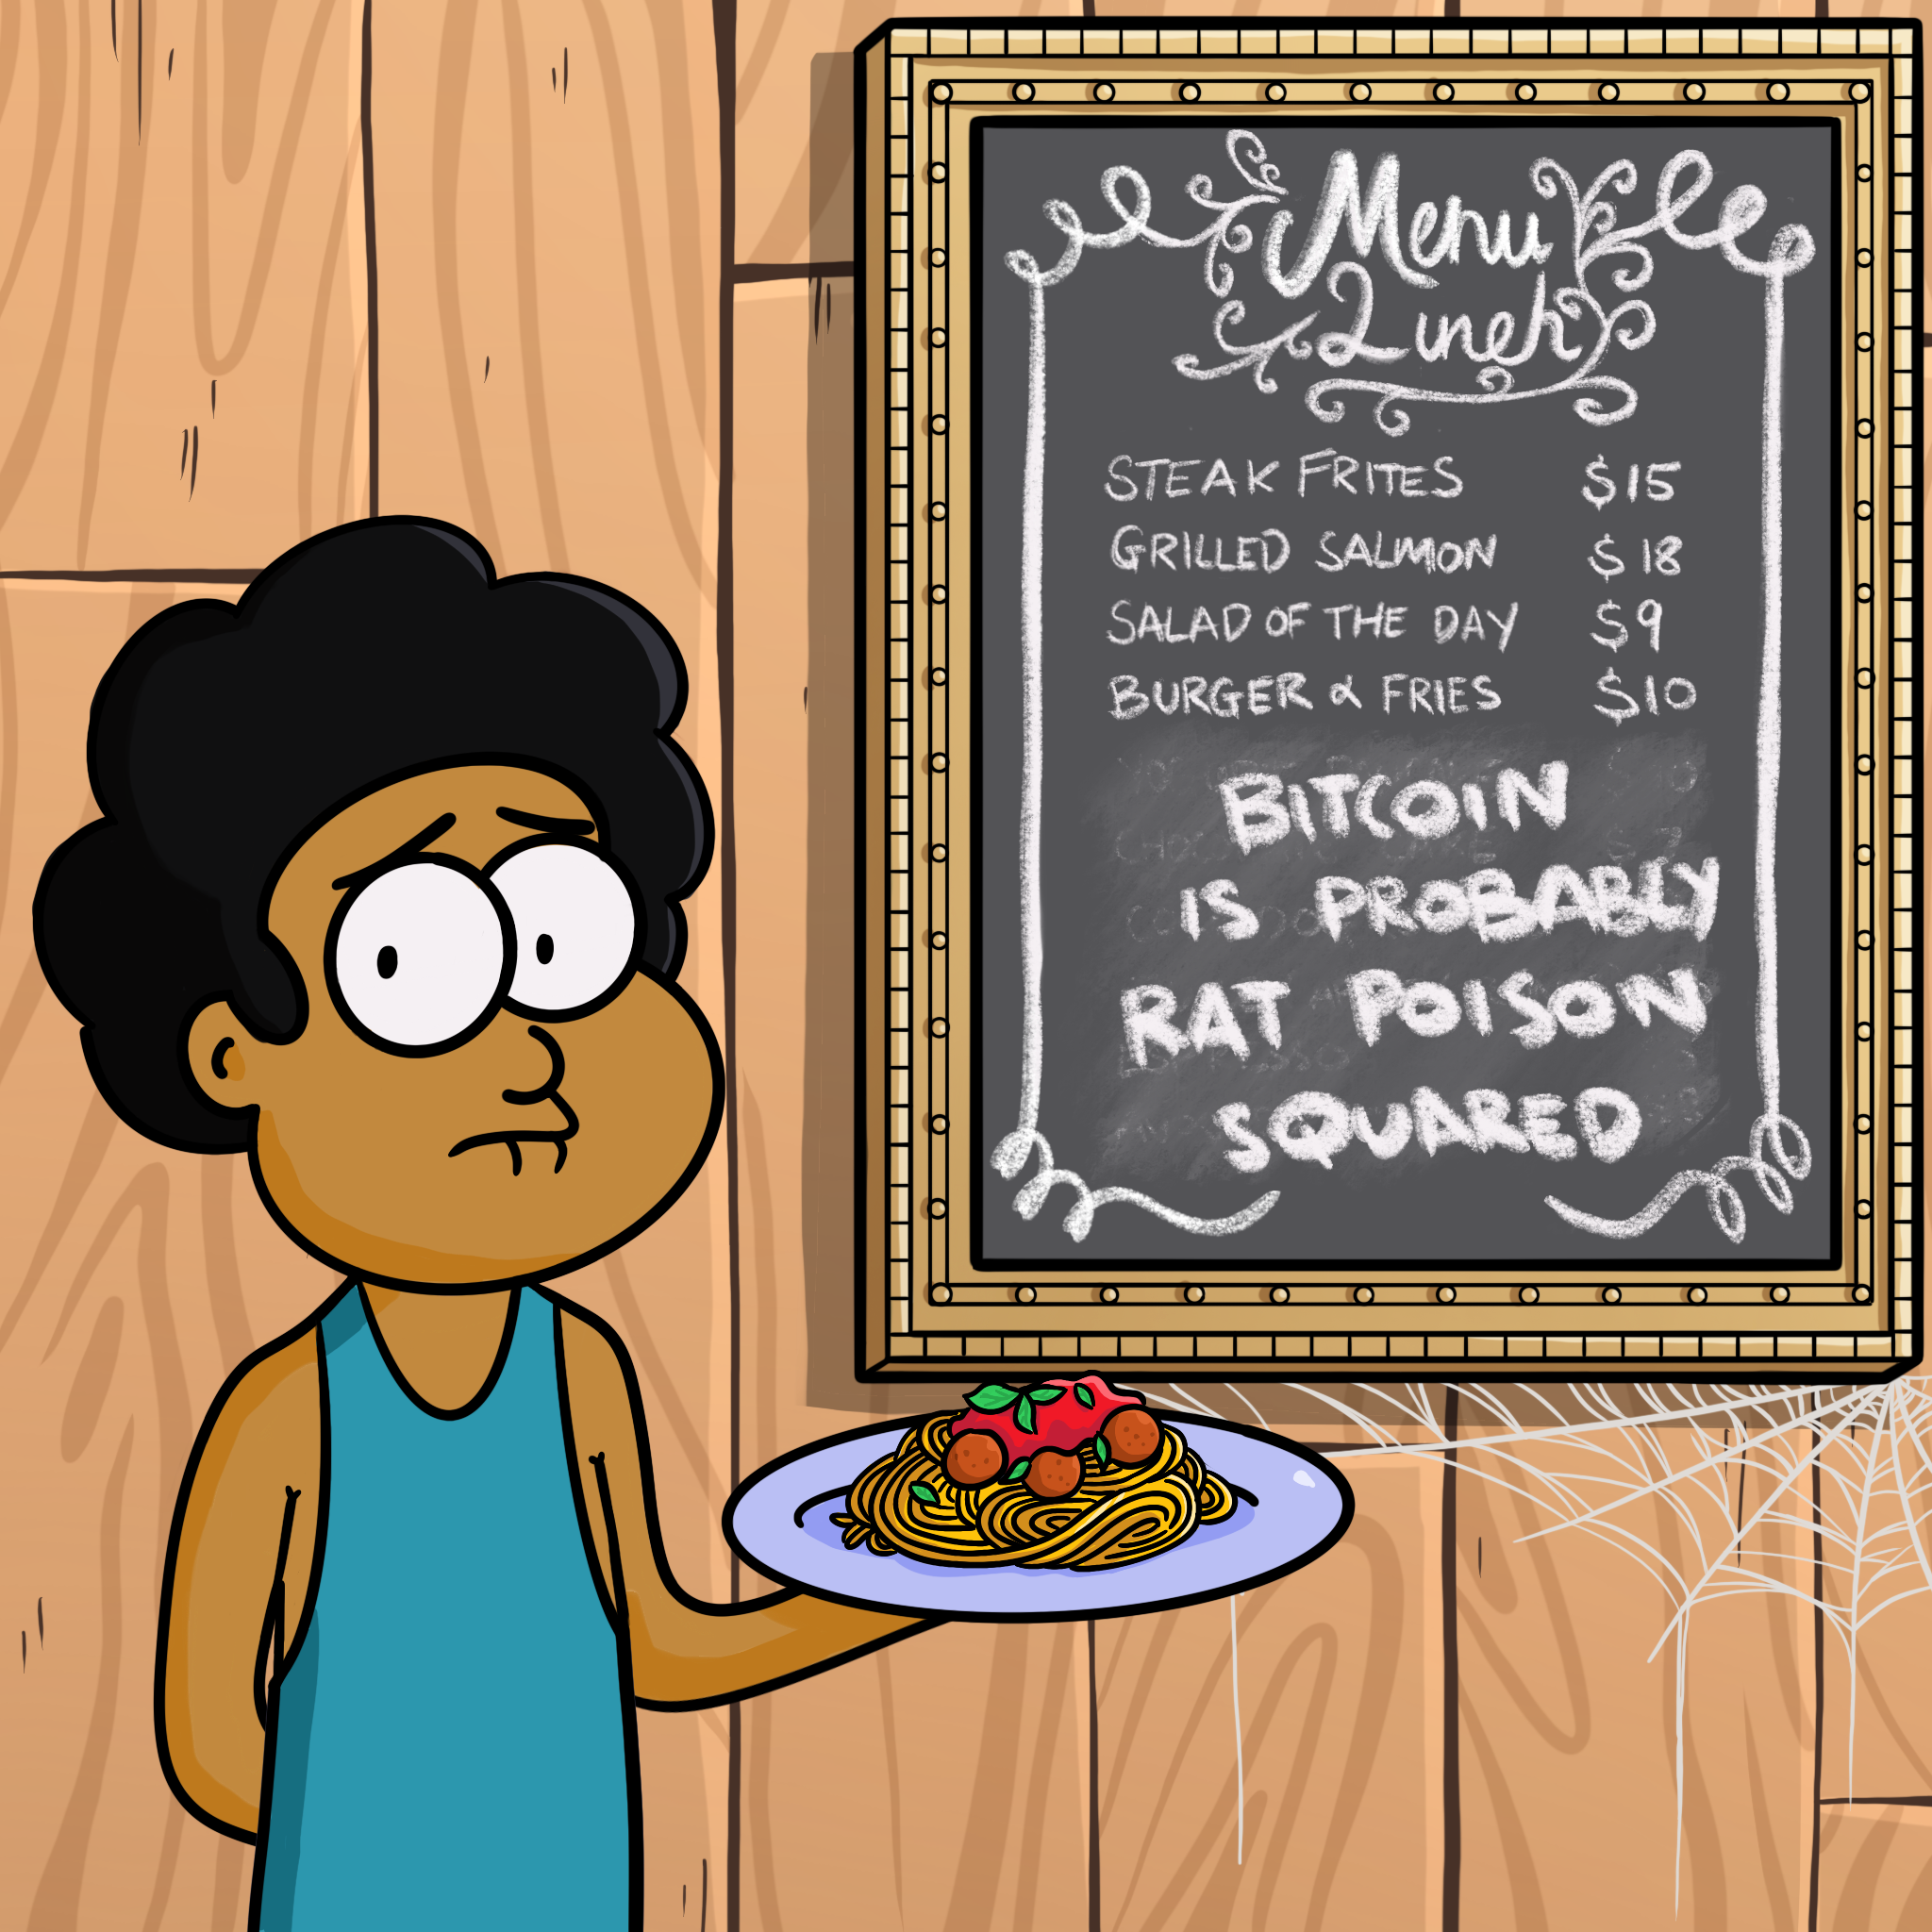 Menu
Lunch
STEAK FRITES $15
GRILLED SALMON $18
SALAD OF THE DAY $9
BURGER & FRIES $10
BITCOIN
IS PROBABLY
RAT POISON
SQUARED